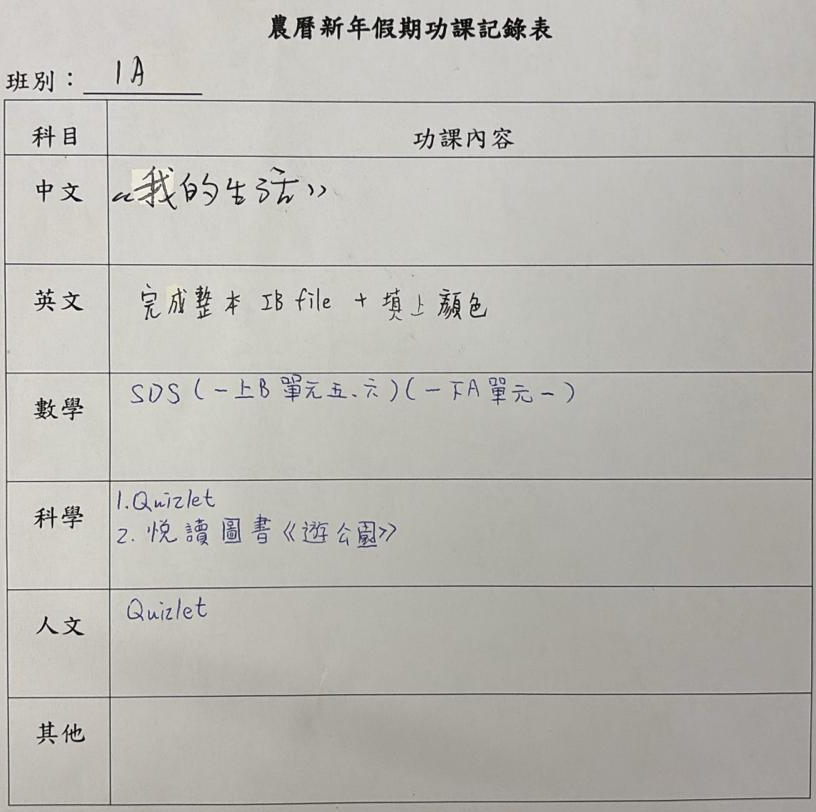 農曆新年假期功課記錄表
班別：1A
科目 功課內容
中文 《我的生活》
英文 完成整本 IB file + 填上顏色
數學 SDS (一上B 單元五、六) (一下A 單元一)
科學 1. Quizlet
2. 悅讀圖書《遊公園》
人文 Quizlet
其他